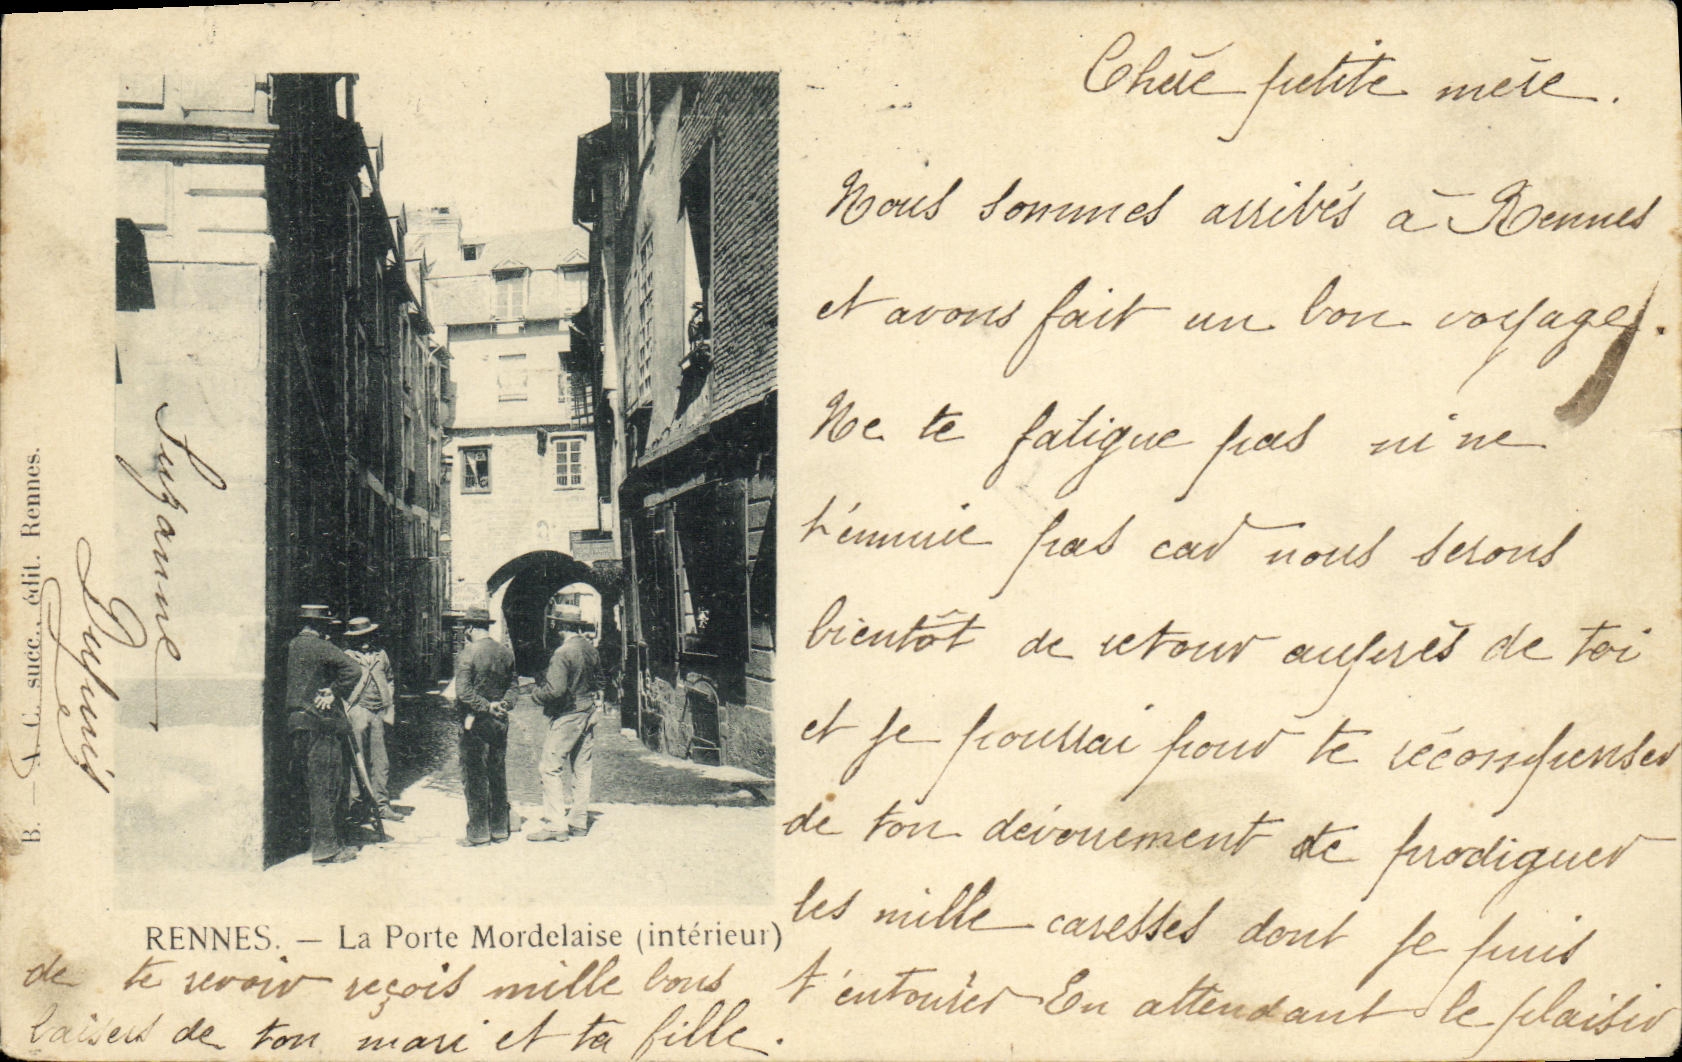 Chère petite mère.
Nous sommes arrivés à Rennes
et avons fait un bon voyage.
Ne te fatigue pas ni ne
t'ennuie pas car nous serons
bientôt de retour auprès de toi
et je pourrai pour te récompenser
de ton dévouement te prodiguer
les mille caresses dont je puis
t'entourer En attendant le plaisir
de te revoir reçois mille bons
baisers de ton mari et ta fille.
Suzanne
Dupuis
RENNES. — La Porte Mordelaise (intérieur)
B. — A. C. succ., édit. Rennes.